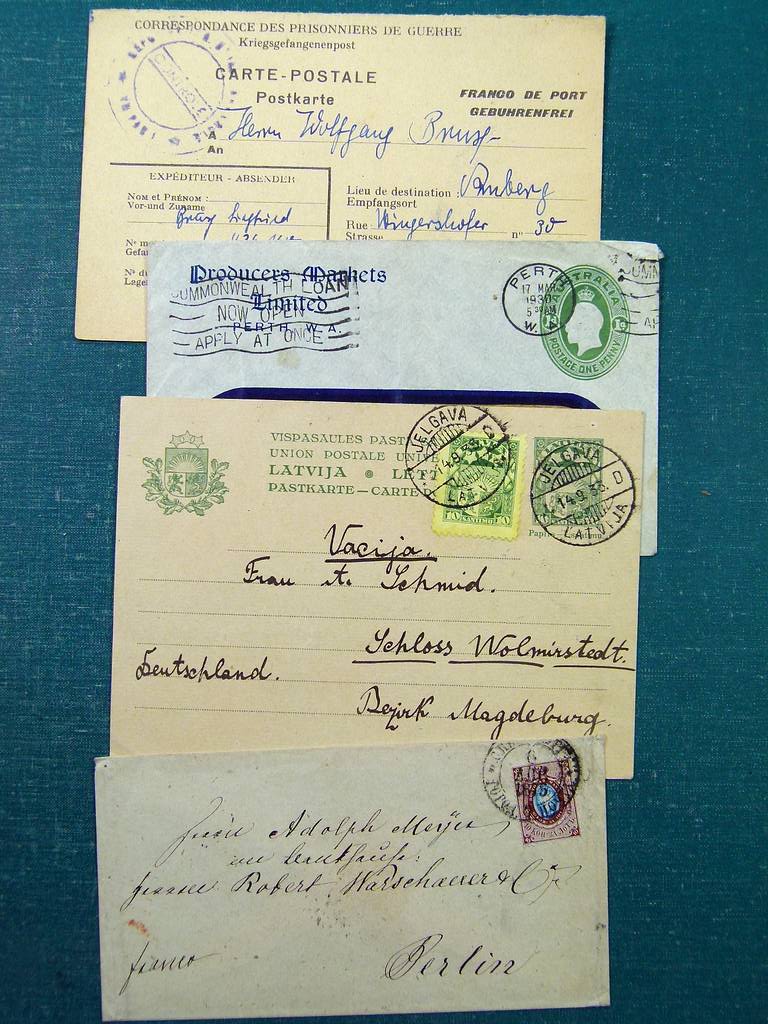 CORRESPONDANCE DES PRISONNIERS DE GUERRE
Kriegsgefangenenpost
CARTE-POSTALE
Postkarte
FRANCO DE PORT
GEBUHRENFREI
A
An
Herrn Wolfgang
EXPÉDITEUR - ABSENDER
Nom et Prénom :
Vor-und Zuname
Siegfried
Lieu de destination : Amberg
Empfangsort
Rue Wingershofer n° 30
Strasse
Producers Markets
Limited
PERTH W. A.
COMMONWEALTH LOAN
NOW OPEN
APPLY AT ONCE
PERTH
17 MAR
1930
W. A.
POSTAGE ONE PENNY
VISPASAULES PAST
UNION POSTALE UNIVE
LATVIJA • LET
PASTKARTE — CARTE P
JELGAVA
14.9.33.
LATVIJA
JELGAVA D
14.9.33.
LATVIJA
Vacija.
Frau A. Schmid.
Schloss Wolmirstedt.
Deutschland.
Bezirk Magdeburg.
Herrn Adolph Meyer
Robert Warschauer & Co
franco
Berlin